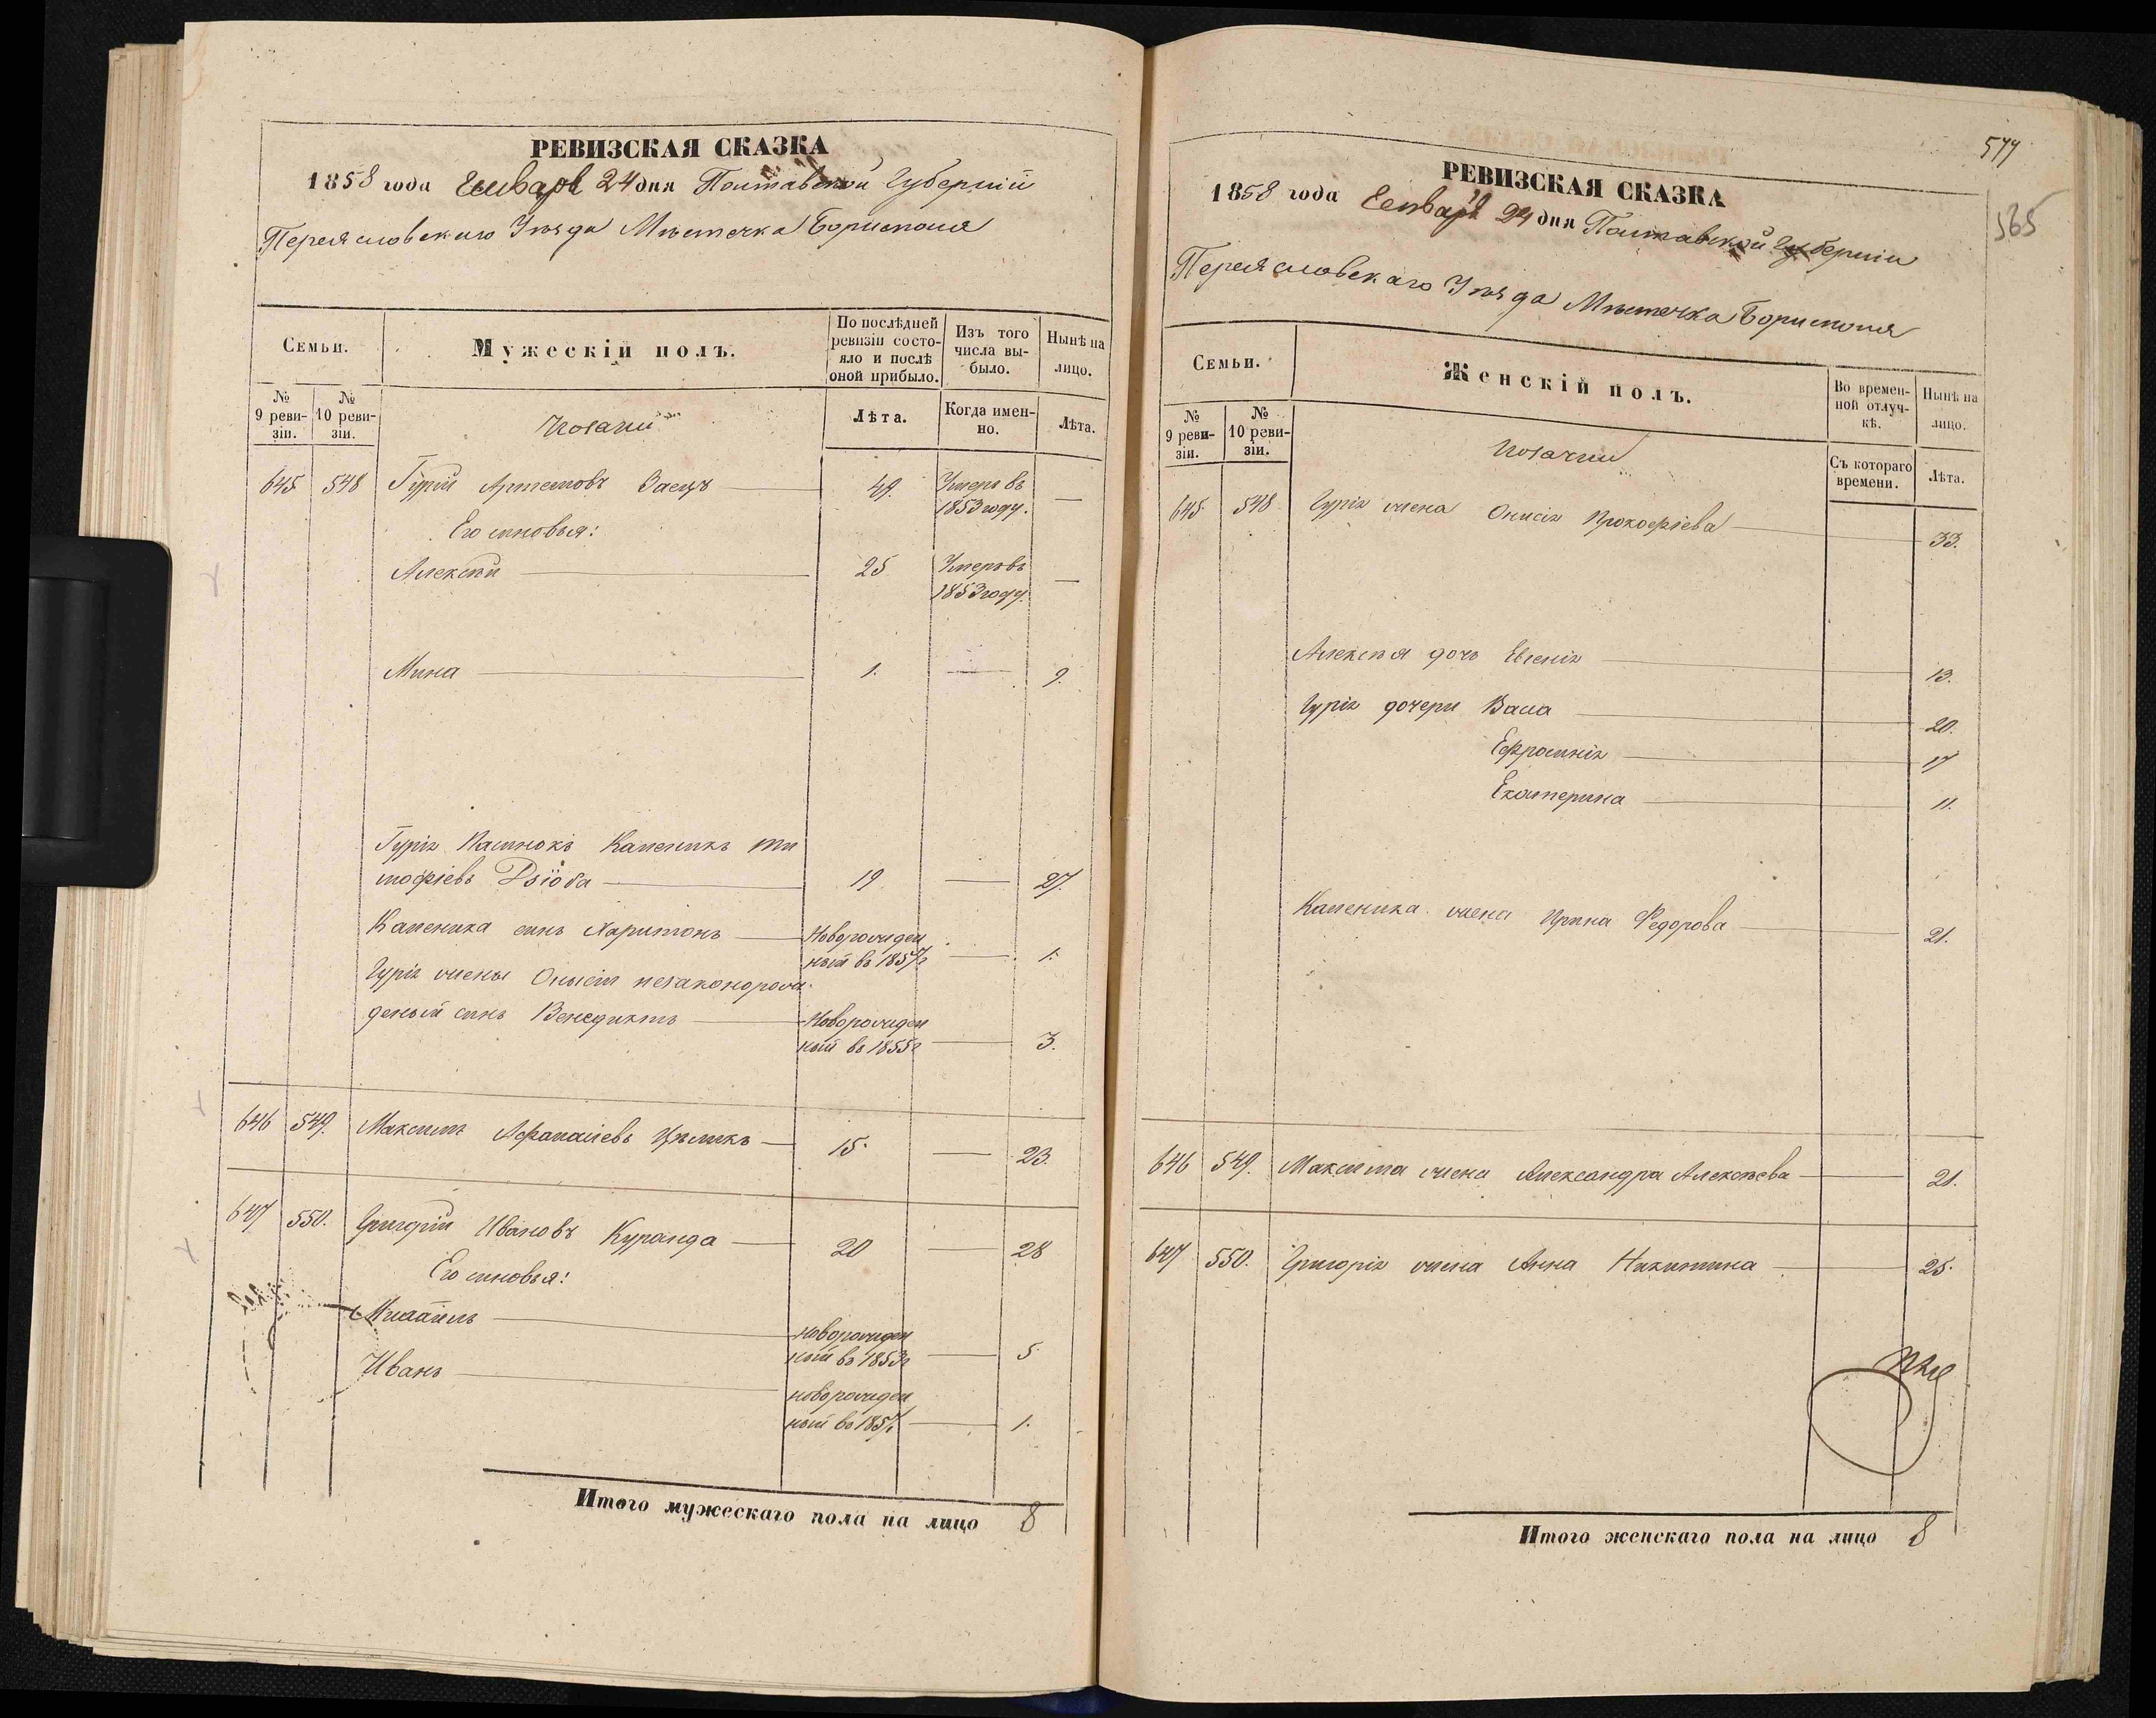 РЕВИЗСКАЯ СКАЗКА
1858 года Генваря 24 дня Полтавской Губерніи
Переясловскаго Уѣзда Мѣстечка Борисполя
Семьи.
Мужескій полъ.
По послѣдней ревизіи состояло и послѣ оной прибыло.
Изъ того числа выбыло.
Нынѣ на лицо.
№ 9 ревизіи.
№ 10 ревизіи.
Козаки
Лѣта.
Когда именно.
Лѣта.
645 548 Гурій Артемовъ Заецъ 49. Умеръ въ 1853 году. —
Его сыновья:
Алексѣй 25 Умеръ въ 1853 году. —
Мина 1. — 9.
Гурія Пасынокъ Каленикъ Ти
мофіевъ Дзюба 19 — 27.
Каленика сынъ Харитонъ Новорожден
ный въ 1857 г — 1.
Гурія жены Онисіи незаконорож
деный сынъ Венедиктъ Новорожден
ный въ 1855 г — 3.
646 549. Максимъ Афанасіевъ 15. — 23.
647 550. Григорій Ивановъ Куранда 20 — 28
Его сыновья:
Михаилъ новорожден
ный въ 1853 г — 5
Иванъ новорожден
ный въ 1857 г — 1.
Итого мужескаго пола на лицо 8
577
565
РЕВИЗСКАЯ СКАЗКА
1858 года Генваря 24 дня Полтавской Губерніи
Переясловскаго Уѣзда Мѣстечка Борисполя
Семьи.
Женскій полъ.
Во временной отлучкѣ.
Нынѣ на лицо.
№ 9 ревизіи.
№ 10 ревизіи.
Козачки
Съ котораго времени.
Лѣта.
645 548 Гурія жена Онисія Прокофіева 33.
Алексѣя дочь Евгенія 13.
Гурія дочери Васа 20.
Ефросинія 17
Екатерина 11.
Каленика жена Ирина Федорова 21.
646 549. Максима жена Александра Алексѣева 21.
647 550. Григорія жена Анна Никитина 25.
Итого женскаго пола на лицо 8